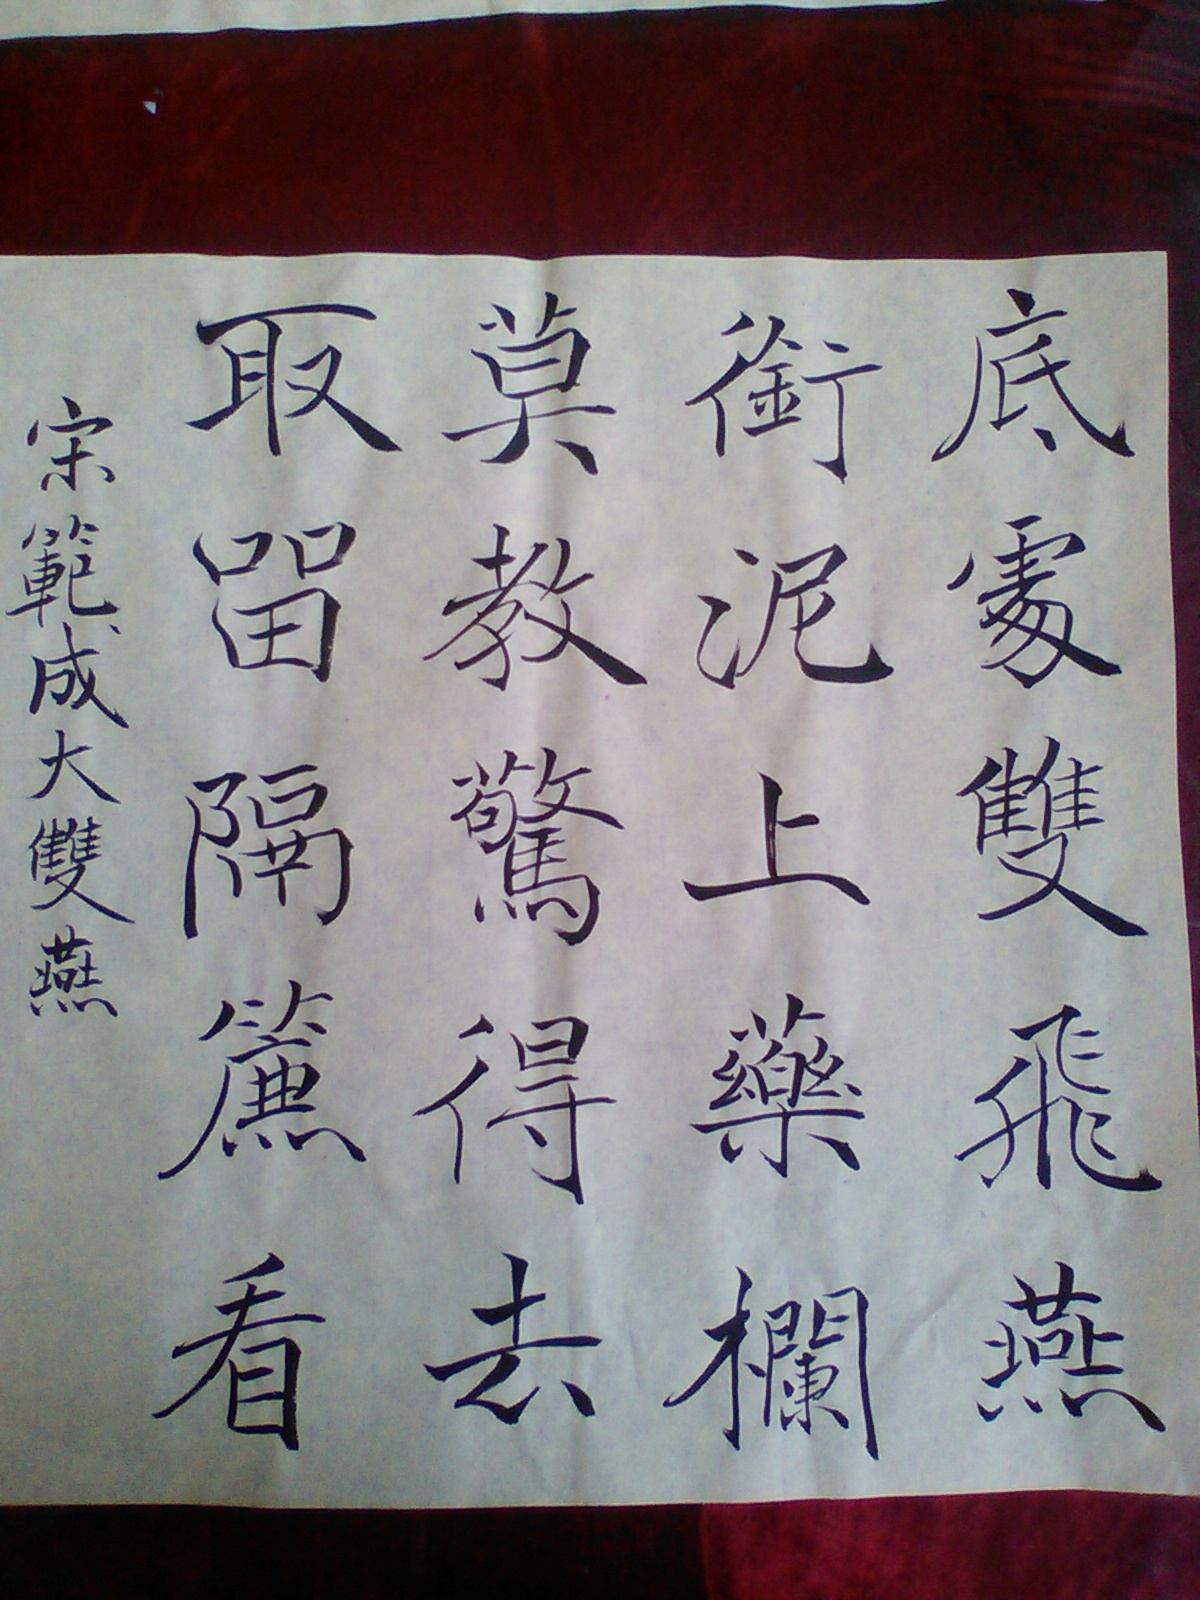 底處雙飛燕
銜泥上藥欄
莫教驚得去
取留隔簾看
宋範成大雙燕